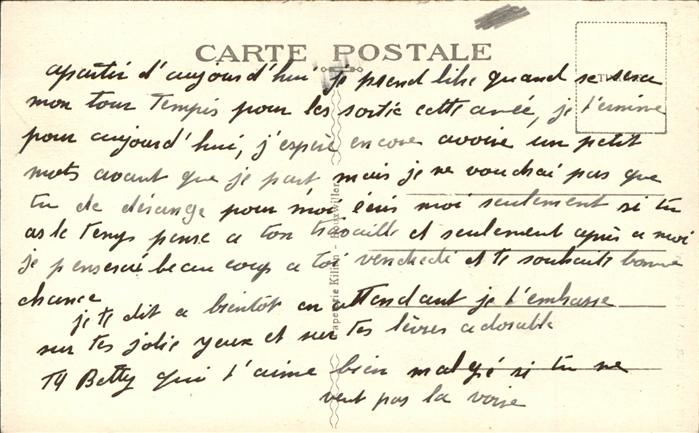 CARTE POSTALE
apartir d'aujourd'hui je prend libe quand se sera
mon tour Tempis pour les sortie cette année, je termine
pour aujourd'hui, j'espère encore avoire un petit
mots avant que je part mais je ne voudrai pas que
tu de dérange pour moi écris moi seulement si tu
as le Temps pense a ton travaille et seulement après a moi
je penserai beaucoup a toi vendredi et te souhaite bonne
chance
je te dit a bientôt en attendant je t'embrasse
sur tes jolie yeux et sur tes lèvres adorable
Ty Betty qui t'aime bien malgré si tu ne
veut pas la voire
Papeterie Kilian -